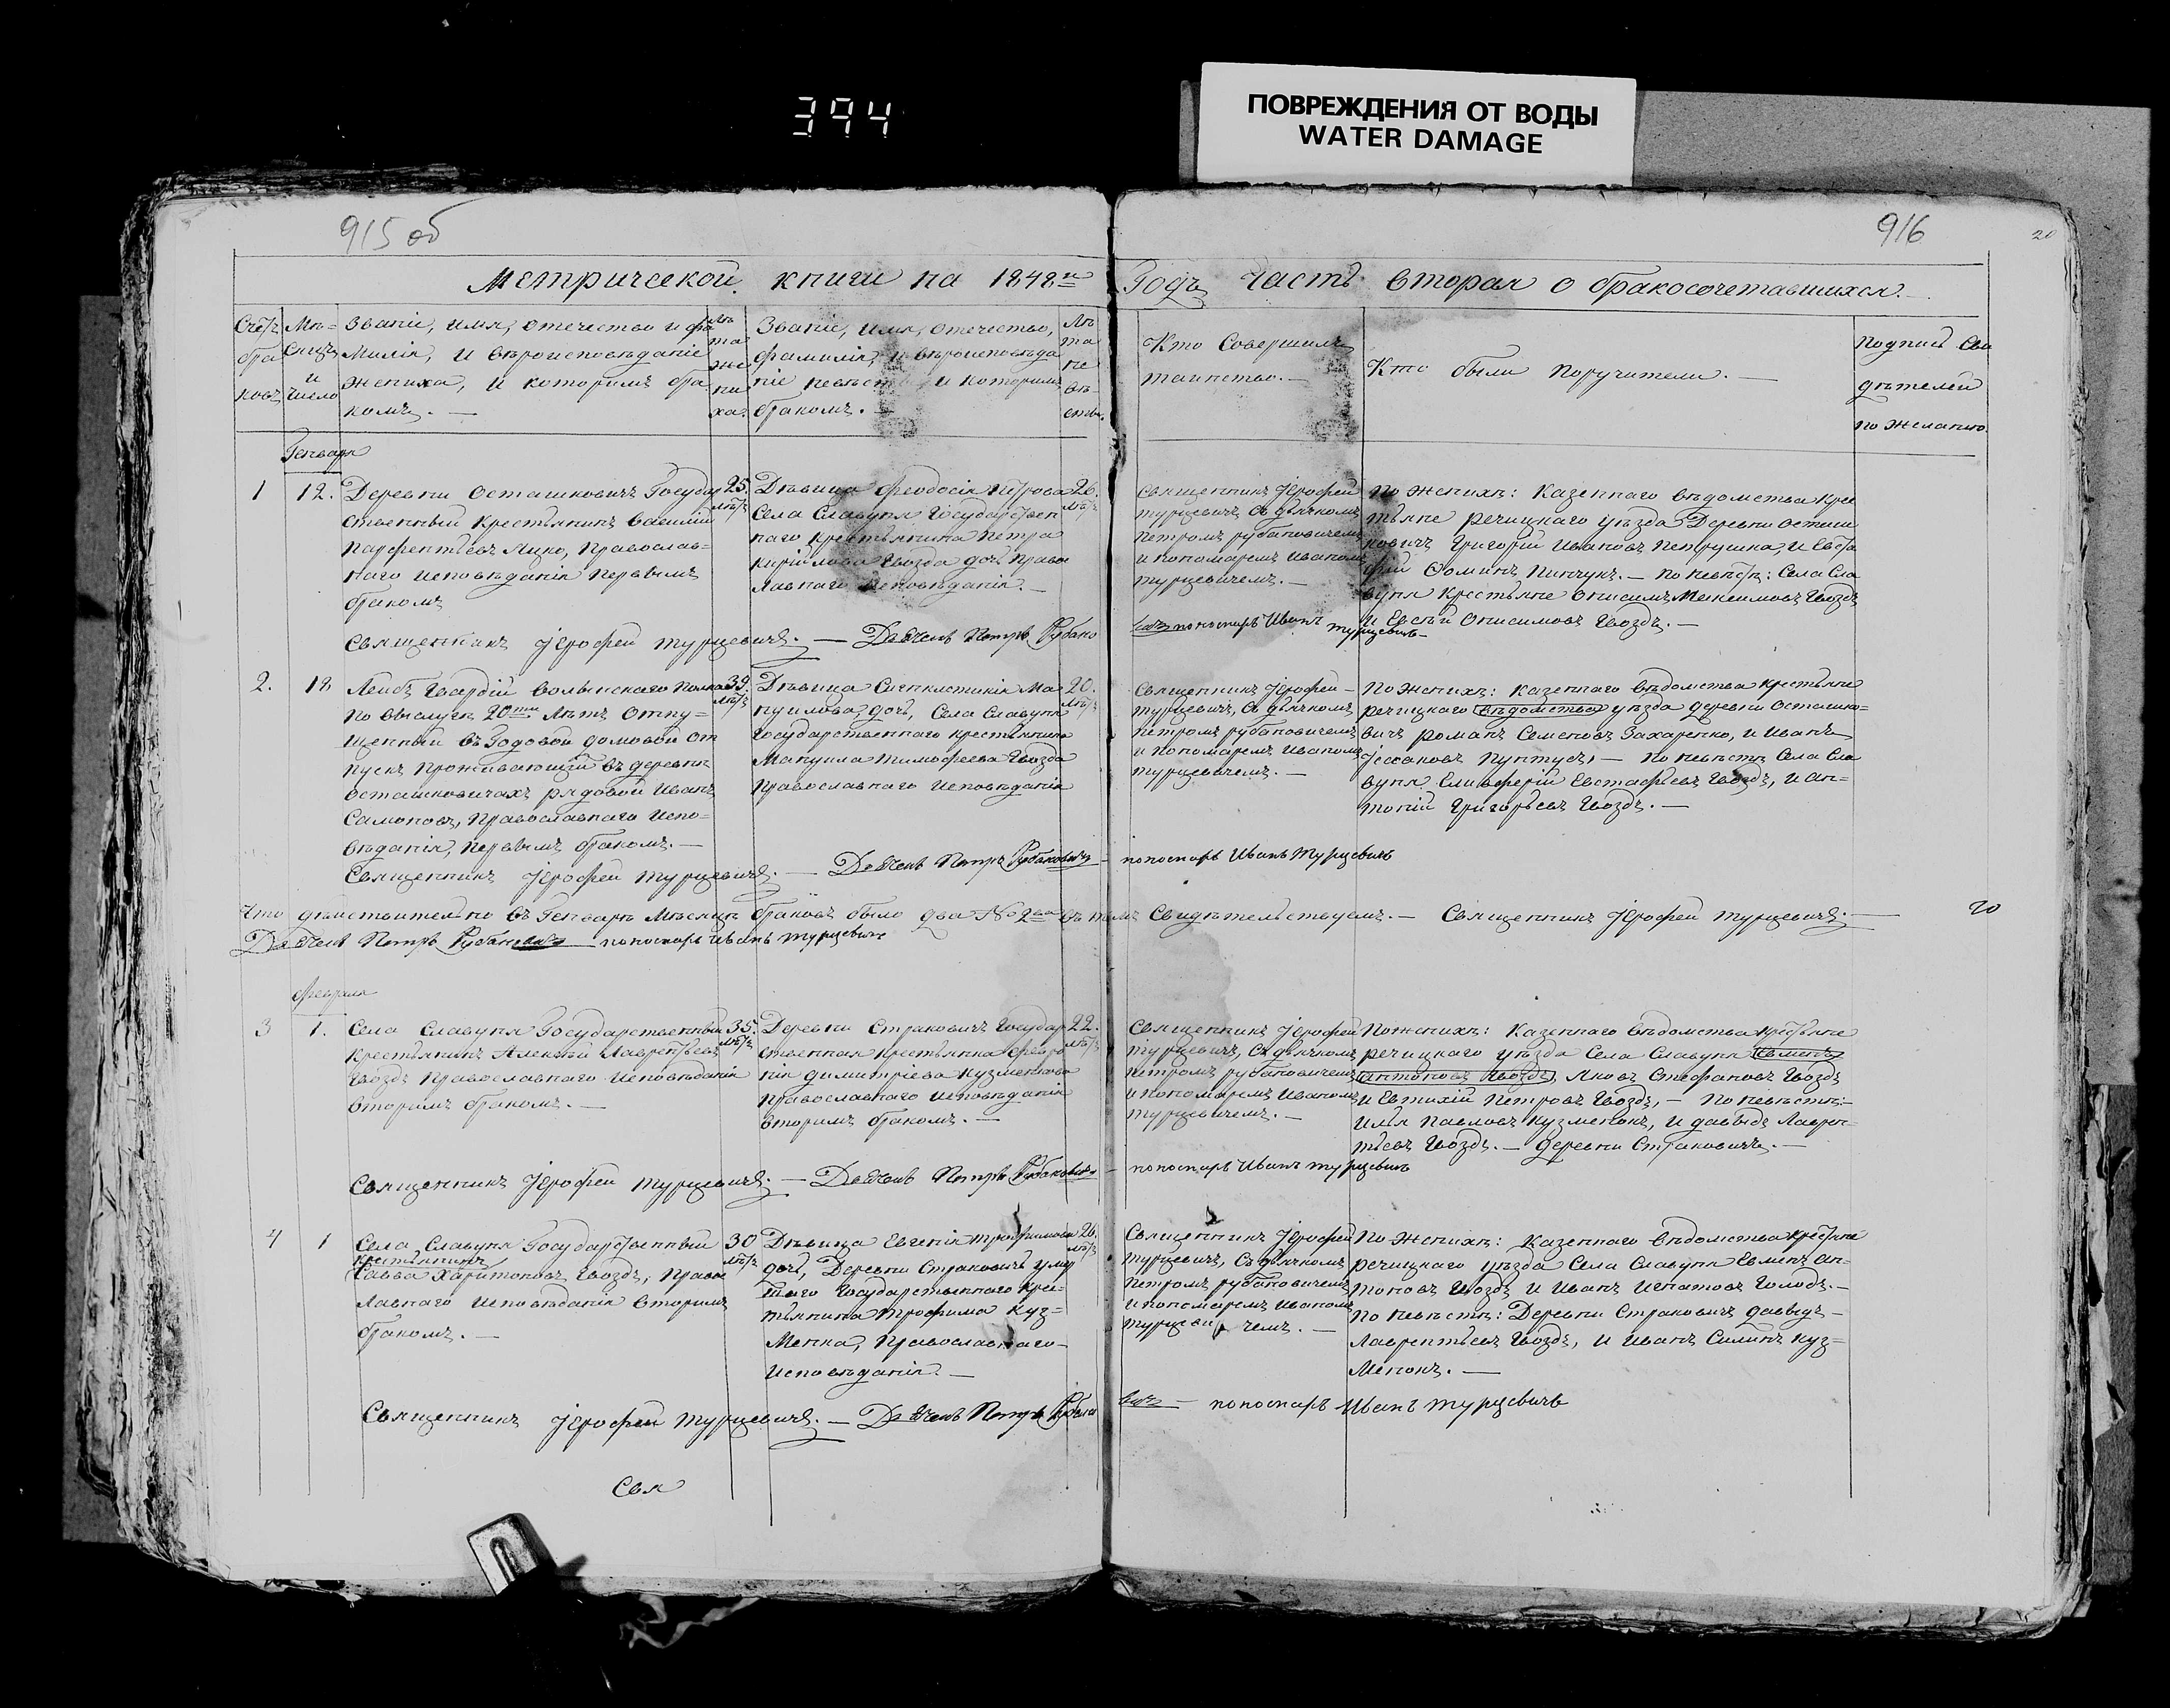 394
ПОВРЕЖДЕНИЯ ОТ ВОДЫ
WATER DAMAGE
915 об
916
20
Метрической книги на 1848й
Годъ часть вторая о бракосочетавшихся.
Счетъ браковъ
Мѣсяцъ и число
Званіе, имя, отечество и фа
милія, и вѣроисповѣданіе
жениха, и которымъ бра
комъ. —
Лѣта жениха.
Званіе, имя, отечество,
фамилія, и вѣроисповѣда
ніе невѣсты и которымъ
бракомъ. —
Лѣта невѣсты.
Кто Совершилъ
таинство. —
Кто были поручители. —
подпись Сви
дѣтелей
по желанію
Генваря
1
12.
Деревни Осташковичъ Государ
ственный крестьянинъ Василій
Парфентьевъ Яцко, Православ=
наго исповѣданія первымъ
бракомъ
25. лѣтъ
Дѣвица Феодосія Петрова
Села Славуня Государствен
наго крестьянина Петра
Кирійлова Гвозда дочь Право
славнаго исповѣданія. —
26. лѣтъ
Священникъ Іерофей
Турцевичъ, съ дьячкомъ
Петромъ Рубановичемъ
и пономаремъ Иваномъ
Турцевичемъ. —
По женихѣ: Казеннаго вѣдомства кре
тьяне Речицкаго уѣзда Деревни Осташ
ковичъ Григорій Ивановъ Петрушка, и Евста
фій Фоминъ Пинчукъ. — По невѣстѣ: Села Сла
вуня крестьяне Онисимъ Максимовъ Гвоздь
и Евсѣй Онисимовъ Гвоздь. —
Священникъ Іерофей Турцевичъ. — Дьячекъ Петръ Рубано
вичъ пономарь Иванъ Турцевичъ
2.
18
Лейбъ Гвардій Волынскаго полка
по выслугѣ 20ти лѣтъ отпу=
щенный въ годовой домовой от
пускъ проживающій въ деревнѣ
Осташковичахъ рядовой Иванъ
Самоновъ, Православнаго испо=
вѣданія, первымъ бракомъ. —
39. лѣтъ
Дѣвица Сигклитикія Ма
нуилова, дочь, Села Славуня
Государственнаго крестьянина
Мануила Тимофеева Гвозда
Православнаго исповѣданія
20. лѣтъ
Священникъ Іерофей —
Турцевичъ, съ дьячкомъ
Петромъ Рубановичемъ
и пономаремъ Иваномъ
Турцевичемъ. —
По женихѣ: Казеннаго вѣдомства крестьяне
Речицкаго вѣдомства уѣзда деревни Осташко=
вичъ Романъ Семеновъ Захаренко, и Иванъ
Пунтусъ, — По невѣстѣ Села Сла
вуня Елиѳферій Евстафьевъ Гвоздь, и Ан=
тоній Григорьевъ Гвоздь. —
Священникъ Іерофей Турцевичъ. — Дьячекъ Петръ Рубановичъ — пономарь Иванъ Турцевичъ
Что дѣйствительно въ Генварѣ мѣсяцѣ браковъ было два № 2 въ томъ Свидѣтельствуемъ. — Священникъ Іерофей Турцевичъ. —
20
Дьячекъ Петръ Рубановичъ — пономарь Иванъ Турцевичъ
Февраля
3
1.
Села Славуня Государственный
крестьянинъ Алексѣй Лаврентьевъ
Гвоздь Православнаго исповѣданія
вторымъ бракомъ. —
35. лѣтъ
Деревни Стракович Государ
ственная крестьянка Февро
нія Димитріева Кузменкова
Православнаго исповѣданія
вторымъ бракомъ. —
22. лѣтъ
Священникъ Іерофей
Турцевичъ, съ дьячкомъ
Петромъ Рубановичемъ
и пономаремъ Иваномъ
Турцевичемъ. —
По женихѣ: Казеннаго вѣдомства крестьяне
Речицкаго уѣзда Села Славуня Евменъ
Антоновъ Гвоздь, Яковъ Стефановъ Гвоздь
и Евтихій Петровъ Гвоздь, — По невѣстѣ:
Илья Павловъ Кузменокъ, и Давыдъ Лаврен=
тьевъ Гвоздь. — Деревни Страковичъ. —
Священникъ Іерофей Турцевичъ. — Дьячекъ Петръ Рубановичъ — пономарь Иванъ Турцевичъ
4
1
Села Славуня Государственный
крестьянинъ
Савва Харитоновъ Гвоздь, Право
славнаго исповѣданія вторымъ
бракомъ. —
30 лѣтъ
Дѣвица Евгенія Трофимова
дочь, Деревни Страковичъ умер
шаго Государственнаго кре=
тьянина Трофима Куз=
менка, Православнаго —
исповѣданія. —
26. лѣтъ
Священникъ Іерофей
Турцевичъ, съ дьячкомъ
Петромъ Рубановичемъ
и пономаремъ Иваномъ
Турцевичемъ. —
По женихѣ: Казеннаго вѣдомства крестьяне
Речицкаго уѣзда Села Славуня Евменъ Ан=
тоновъ Гвоздь и Иванъ Игнатовъ Голодъ. —
по невѣстѣ: Деревни Страковичъ Давыдъ —
Лаврентьевъ Гвоздь, и Иванъ Силинъ Куз=
менокъ. —
Священникъ Іерофей Турцевичъ. — Дьячекъ Петръ Рубано
вичъ — пономарь Иванъ Турцевичъ
Свя